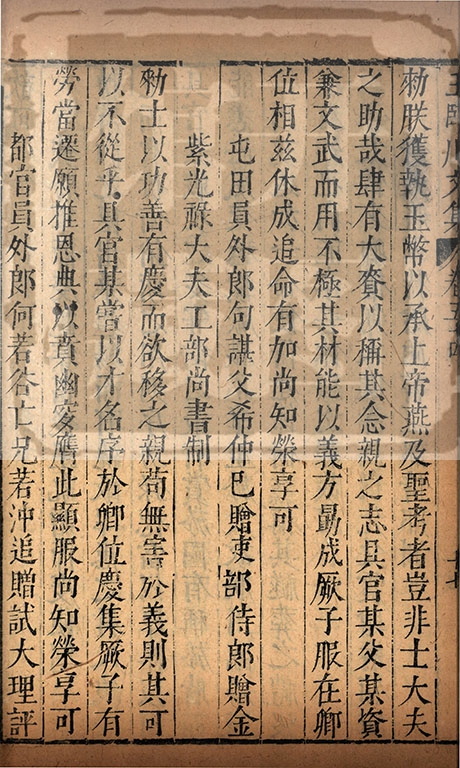 王臨川文集 卷五十四
勑朕獲執玉幣以承上帝燕及聖考者豈非士大夫
之助哉肆有大賚以稱其念親之志具官某父某資
兼文武而用不極其材能以義方勗成厥子服在卿
位相茲休成追命有加尚知榮享可
屯田員外郎句諶父希仲已贈吏部侍郎贈金
紫光祿大夫工部尚書制
勑士以功善有慶而欲移之親苟無害於義則其可
以不從乎具官某嘗以才名序於卿位慶集厥子有
勞當遷願推恩典以賁幽穸膺此顯服尚知榮享可
都官員外郎何若谷亡兄若沖追贈試大理評